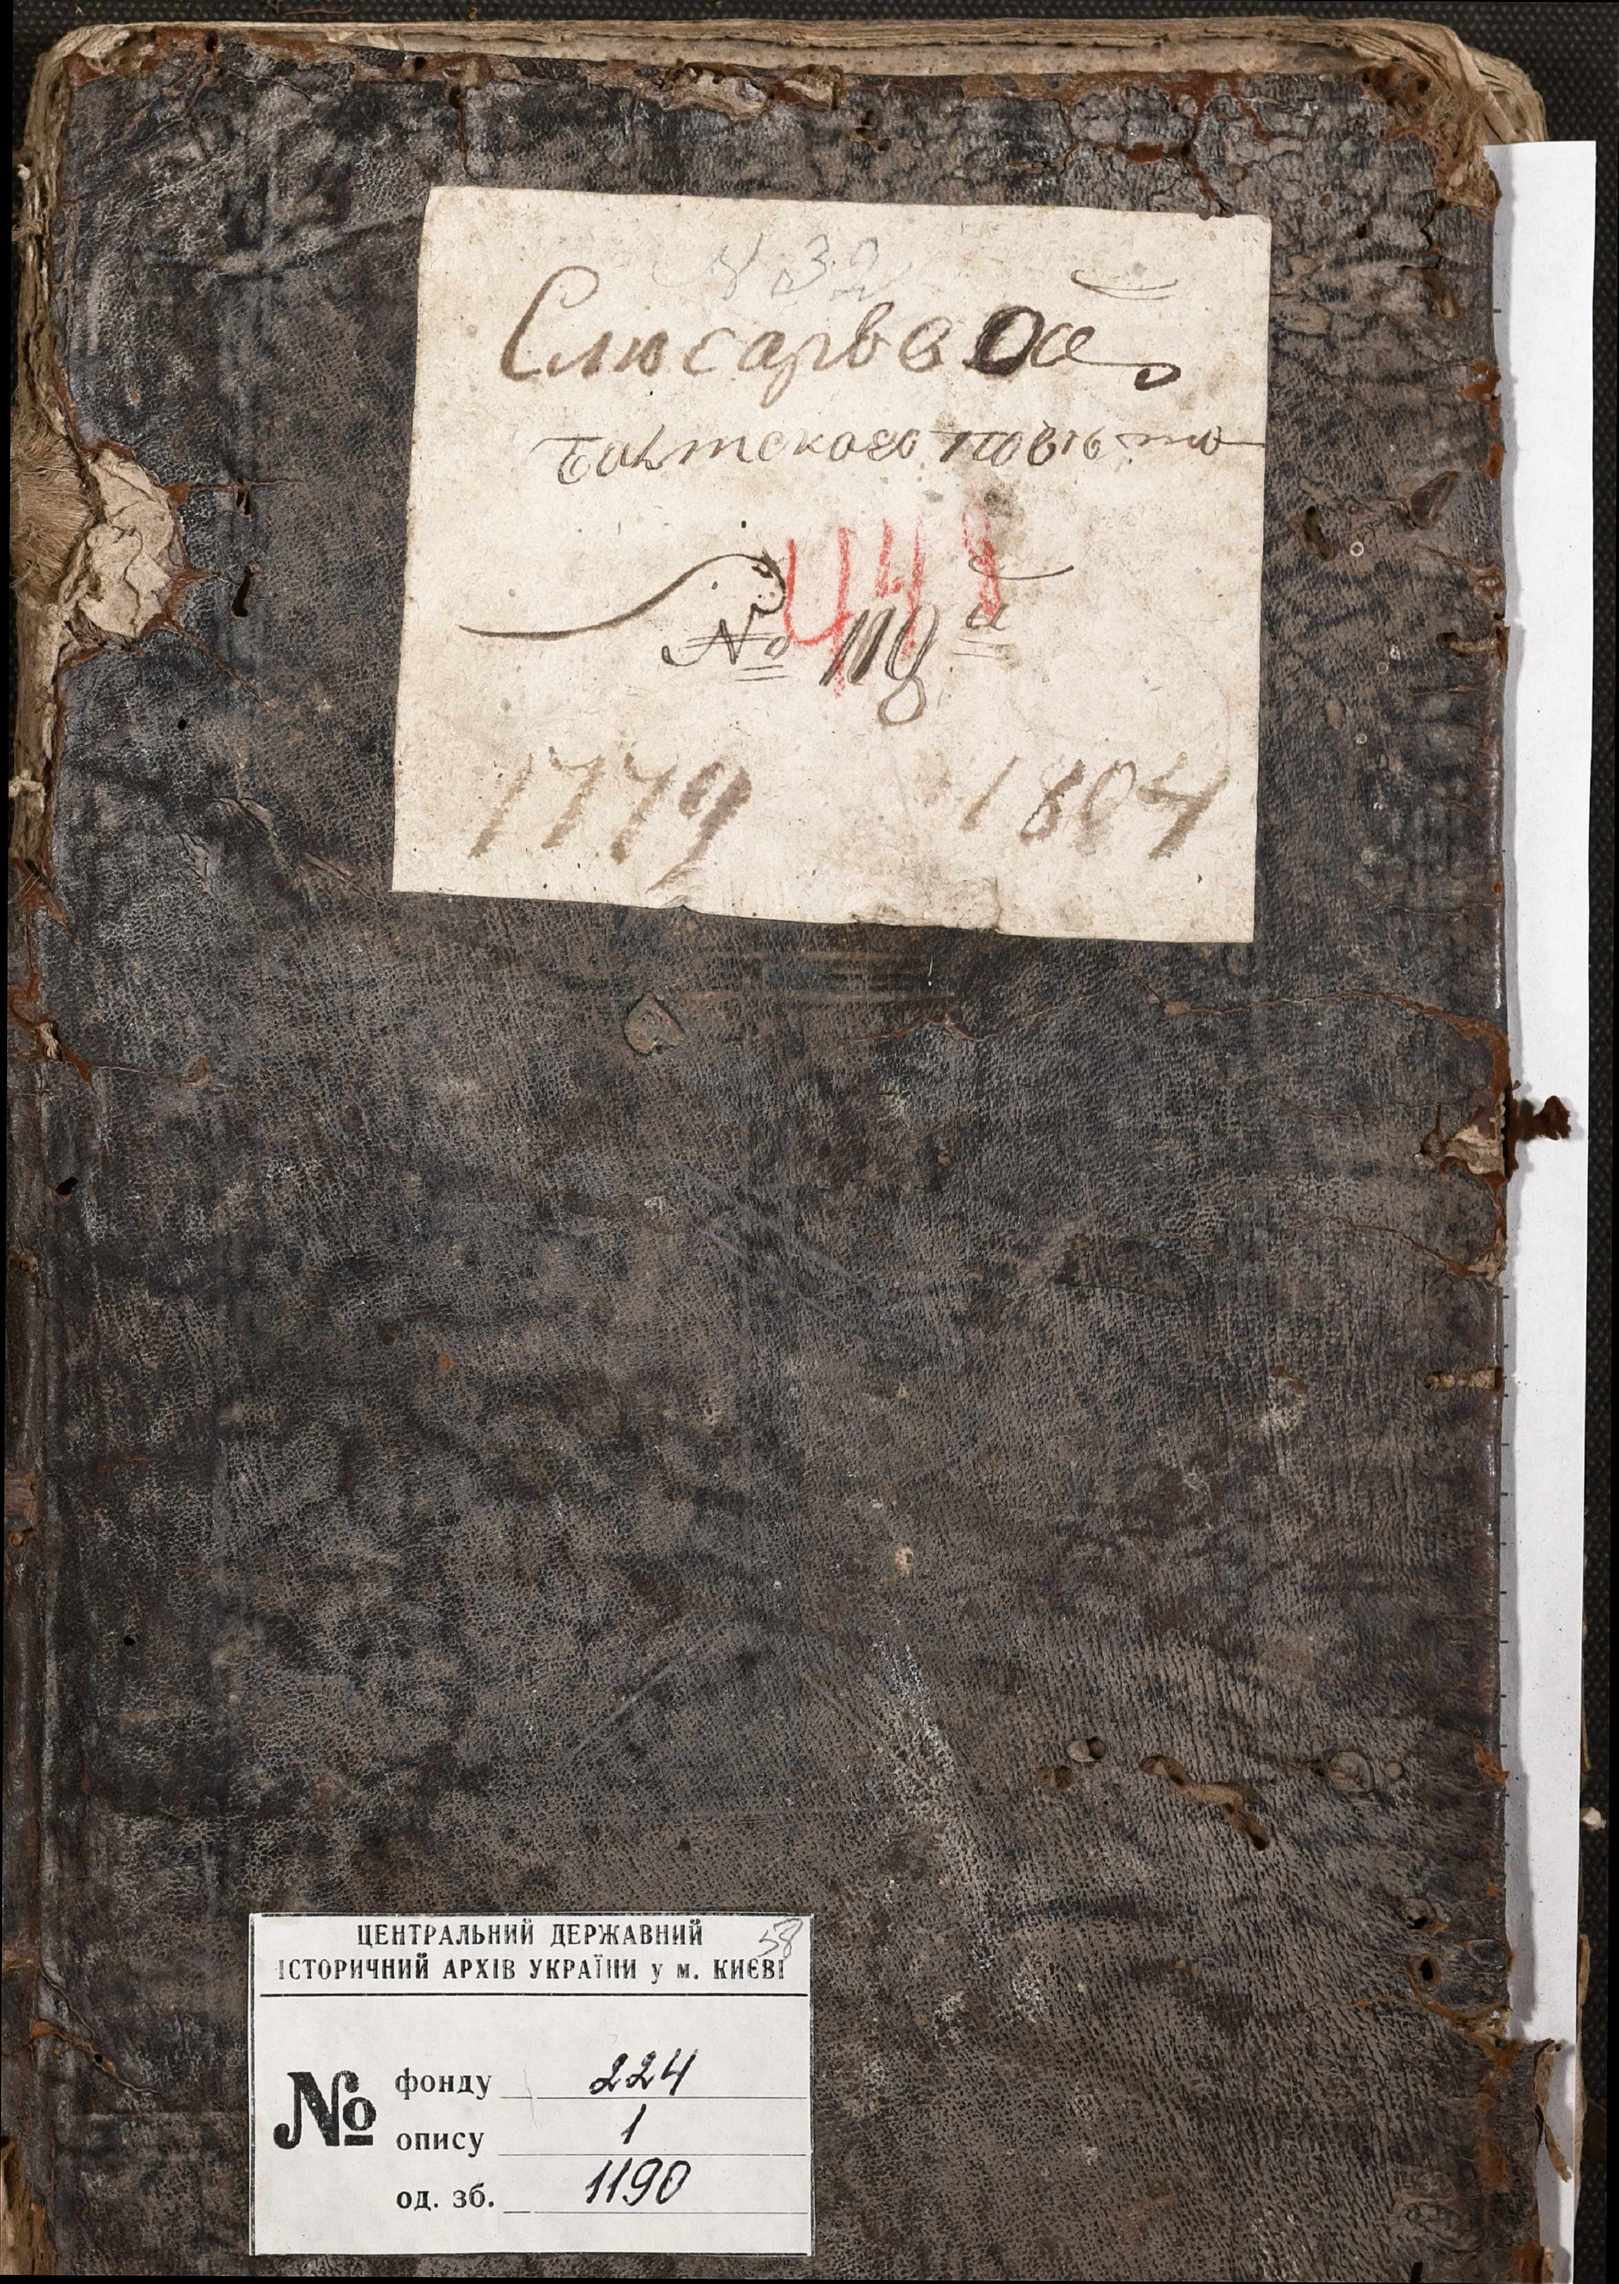 № 32
Слюсарєвой
повѣта
441
№
1779 1804
ЦЕНТРАЛЬНИЙ ДЕРЖАВНИЙ
58
ІСТОРИЧНИЙ АРХІВ УКРАЇНИ у м. КИЄВІ
№
фонду 224
опису 1
од. зб. 1190